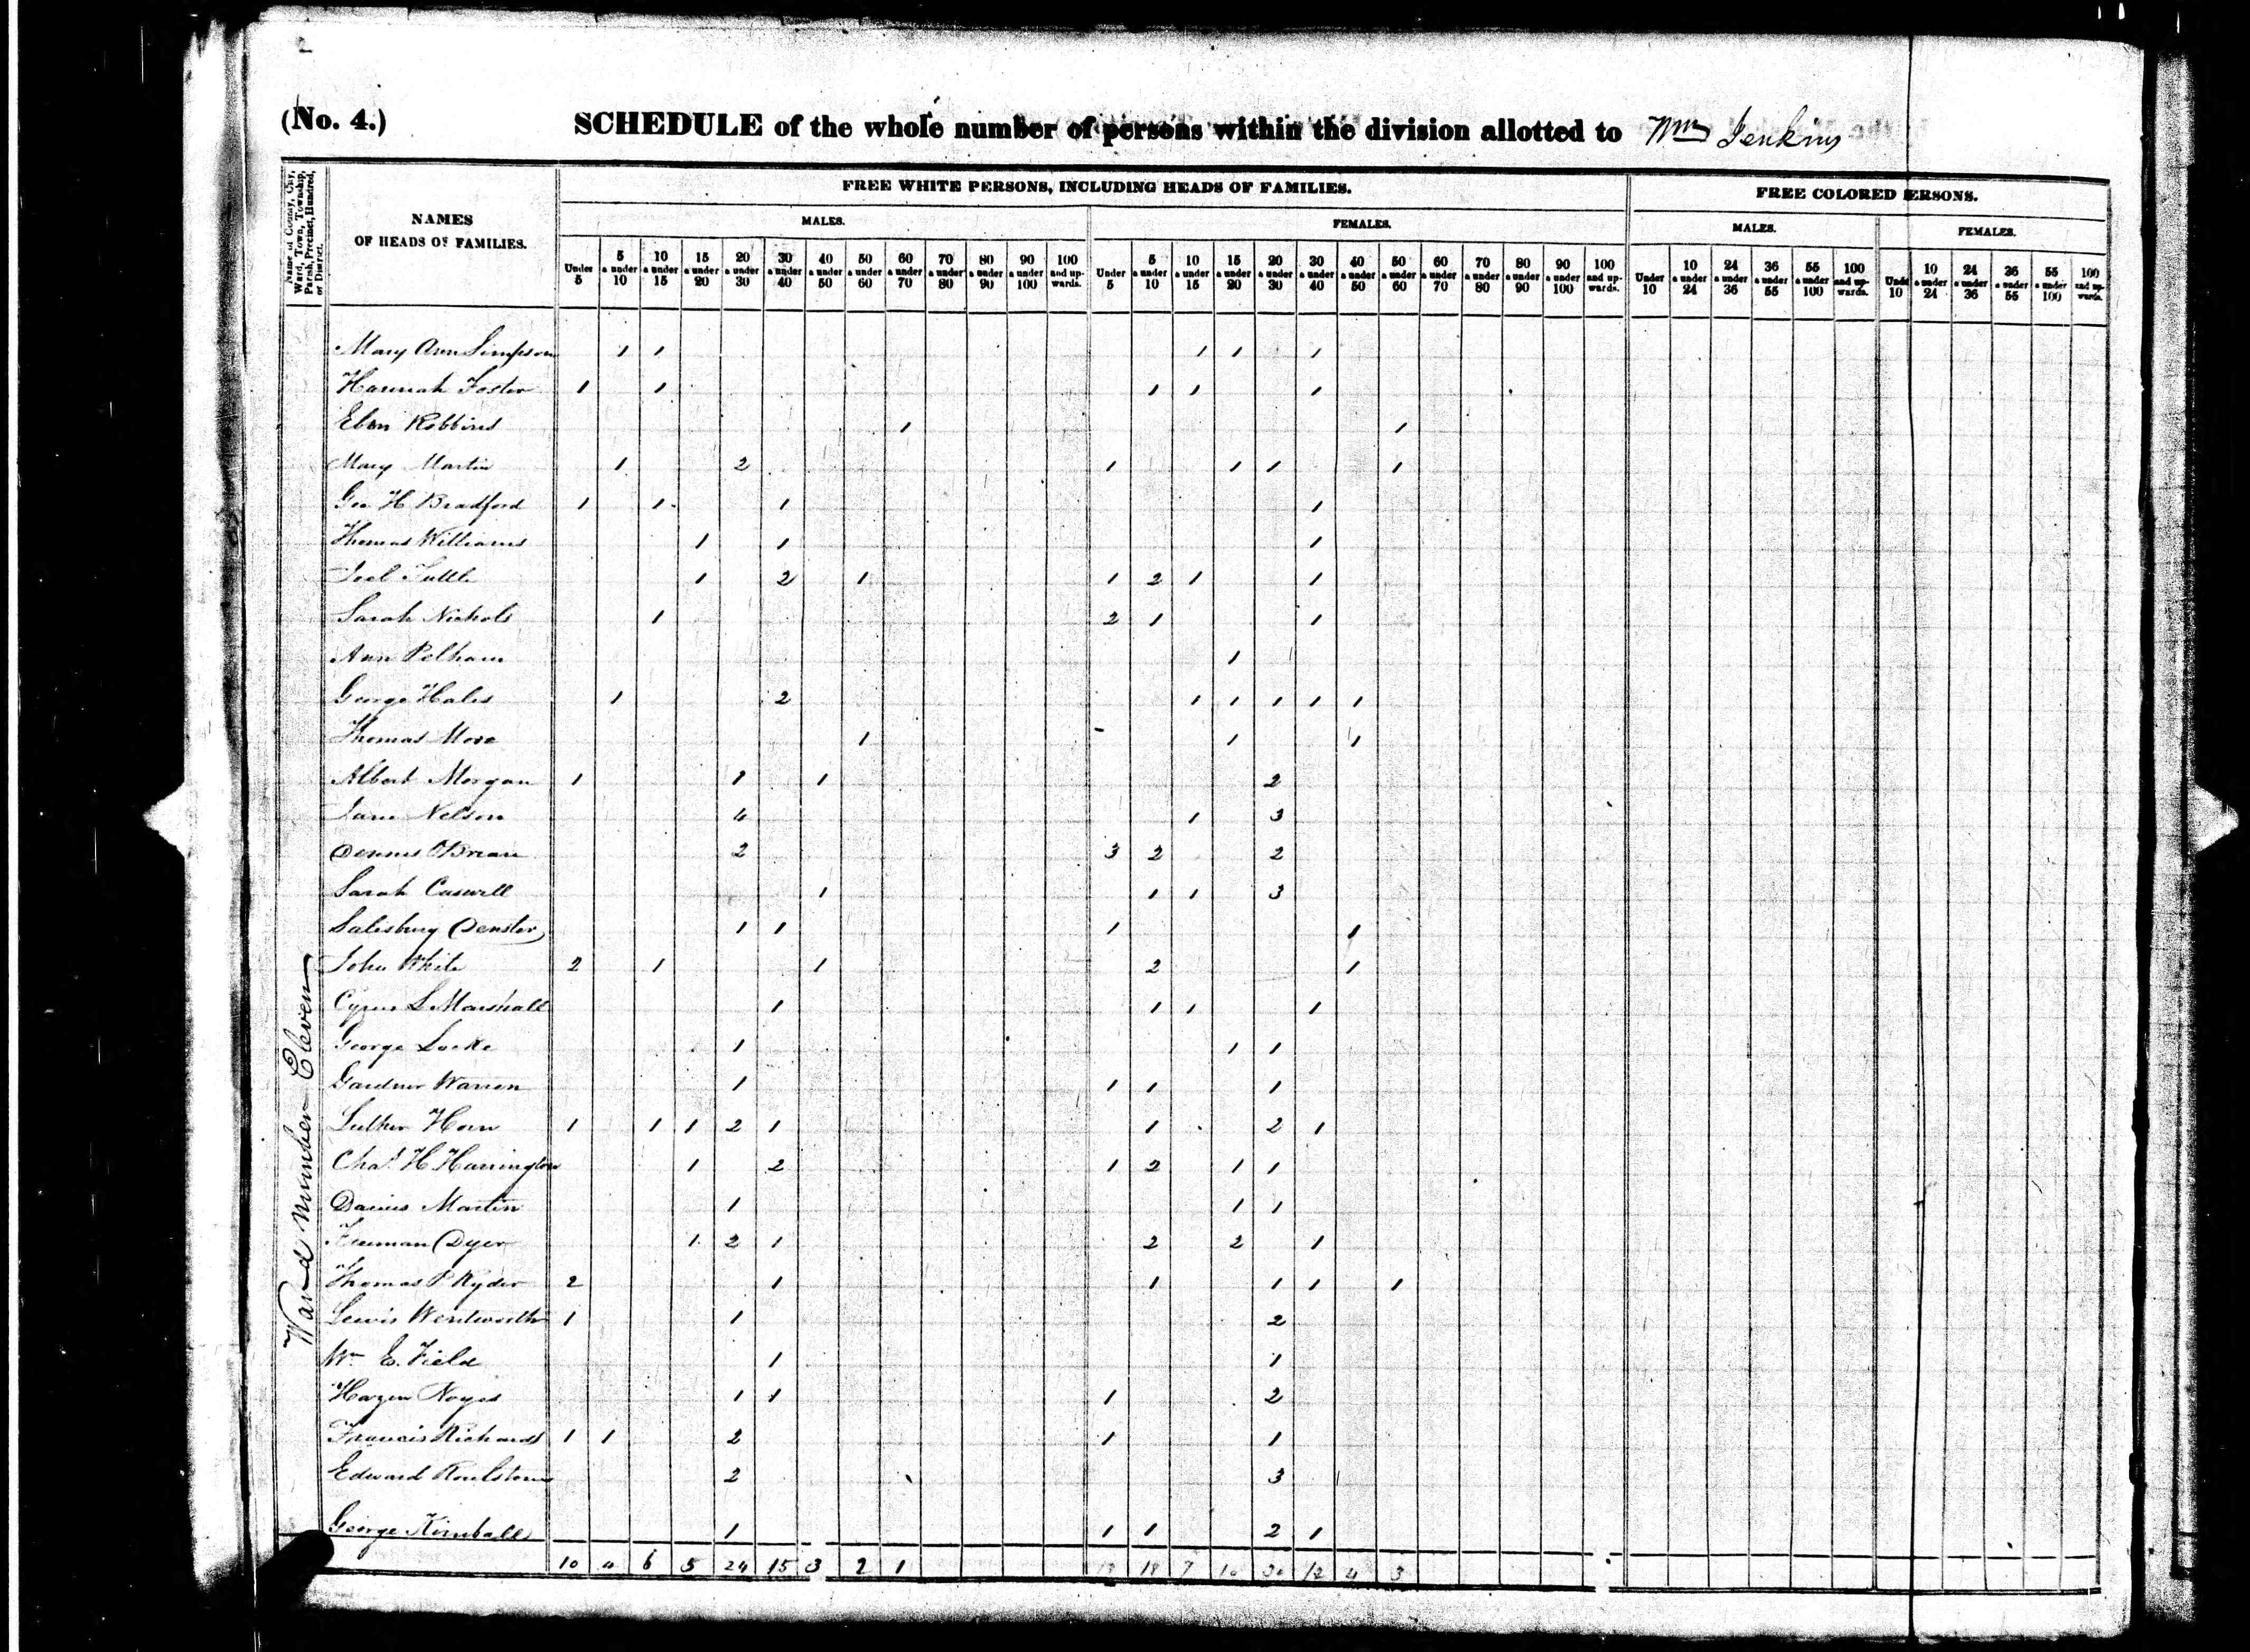 (No. 4.) SCHEDULE of the whole number of persons within the division allotted to Wm Jenkins
Name of County, City, Ward, Town, Township, Parish, Precinct, Hundred, or District.
NAMES OF HEADS OF FAMILIES.
FREE WHITE PERSONS, INCLUDING HEADS OF FAMILIES.
FREE COLORED PERSONS.
MALES. FEMALES. MALES. FEMALES.
Under 5 5 & under 10 10 & under 15 15 & under 20 20 & under 30 30 & under 40 40 & under 50 50 & under 60 60 & under 70 70 & under 80 80 & under 90 90 & under 100 100 and upwards. Under 5 5 & under 10 10 & under 15 15 & under 20 20 & under 30 30 & under 40 40 & under 50 50 & under 60 60 & under 70 70 & under 80 80 & under 90 90 & under 100 100 and upwards. Under 10 10 & under 24 24 & under 36 36 & under 55 55 & under 100 100 and upwards. Under 10 10 & under 24 24 & under 36 36 & under 55 55 & under 100 100 and upwards.
Ward number Eleven
Mary Ann Simpson 1 1 1 1 1
Hannah Foster 1 1 1 1 1
Eben Robbins 1 1
Mary Martin 1 2 1 1 1 1
Geo H Bradford 1 1 1 1
Thomas Williams 1 1 1
Joel Tuttle 1 2 1 1 2 1 1
Sarah Nichols 1 2 1 1
Ann Pelham 1
George Hales 1 2 1 1 1 1 1
Thomas More 1 1 1
Albert Morgan 1 1 1 2
Jane Nelson 4 1 3
Dennis OBrean 2 3 2 2
Sarah Caswell 1 1 1 3
Salisbury 1 1 1 1
John White 2 1 1 2 1
Cyrus L Marshall 1 1 1 1
George Locke 1 1 1
Gardner Warren 1 1 1 1
Luther Horn 1 1 1 2 1 1 2 1
Chas. H Harrington 1 2 1 2 1 1
Darius Martin 1 1 1
Freeman Dyer 1 2 1 2 2 1
Thomas P Ryder 2 1 1 1 1 1
Lewis Wentworth 1 1 2
Wm E. Field 1 1
Hazen Noyes 1 1 1 2
Francis Richards 1 1 2 1 1
Edward Roulstone 2 3
George Kimball 1 1 1 2 1
10 4 6 5 24 15 3 2 1 18 7 10 30 12 4 3